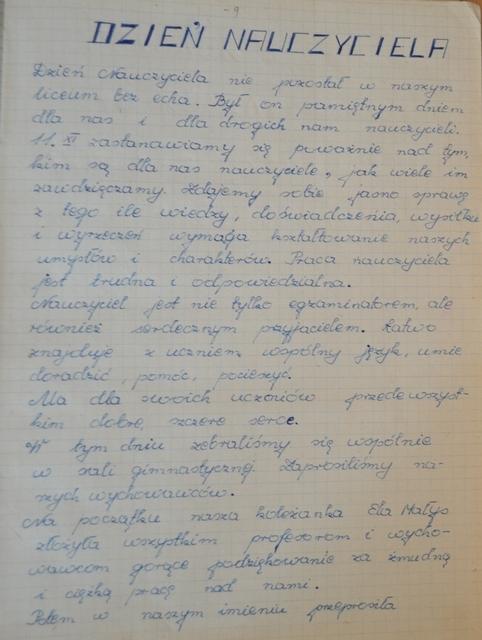 - 9
DZIEŃ NAUCZYCIELA
Dzień Nauczyciela nie pozostał w naszym
liceum bez echa. Był on pamiętnym dniem
dla nas i dla drogich nam nauczycieli.
11. XI zastanawiamy się poważnie nad tym,
kim są dla nas nauczyciele, jak wiele im
zawdzięczamy. Zdajemy sobie jasno sprawę
z tego ile wiedzy, doświadczenia, wysiłku
i wyrzeczeń wymaga kształtowanie naszych
umysłów i charakterów. Praca nauczyciela
jest trudna i odpowiedzialna.
Nauczyciel jest nie tylko egzaminatorem, ale
również serdecznym przyjacielem. Łatwo
znajduje z uczniem wspólny język, umie
doradzić, pomóc, pocieszyć.
Ma dla swoich uczniów przede wszyst-
kim dobre, szczere serce.
W tym dniu zebraliśmy się wspólnie
w sali gimnastycznej. Zaprosiliśmy na-
szych wychowawców.
Na początku nasza koleżanka Ela Małys
złożyła wszystkim profesorom i wycho-
wawcom gorące podziękowanie za żmudną
i ciężką pracę nad nami.
Potem w naszym imieniu przeprosiła